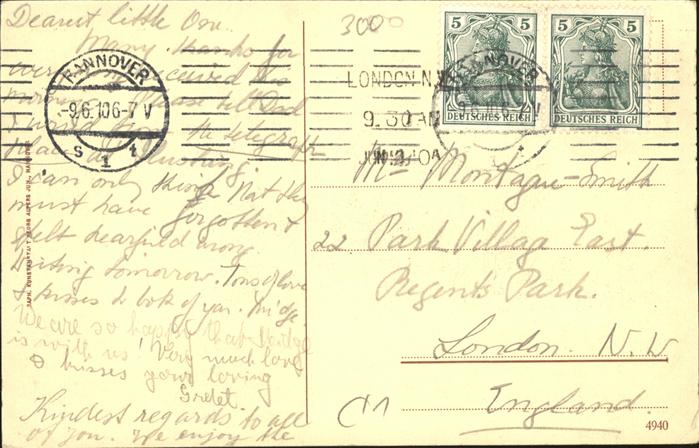 Dearest little One.
Many thanks for
received this
please tell Dad
the telegraph
I can only think that they
must have forgotten &
spelt dearfield wrong.
tomorrow. Tons of love
& kisses to both of you. Midge
We are so happy that Midge
is with us! Very much love
& kisses your loving
Gretel.
Kindest regards to all
of you. We enjoy the
3000
HANNOVER
-9.6.10 6-7 V
S 1 t
LONDON N.W
9.30 AM
JUN 10
5 5
DEUTSCHES REICH
5 5
DEUTSCHES REICH
HANNOVER
Mrs Montague-Smith
22 Park Village East.
Regent's Park.
London. N.W
England.
4940